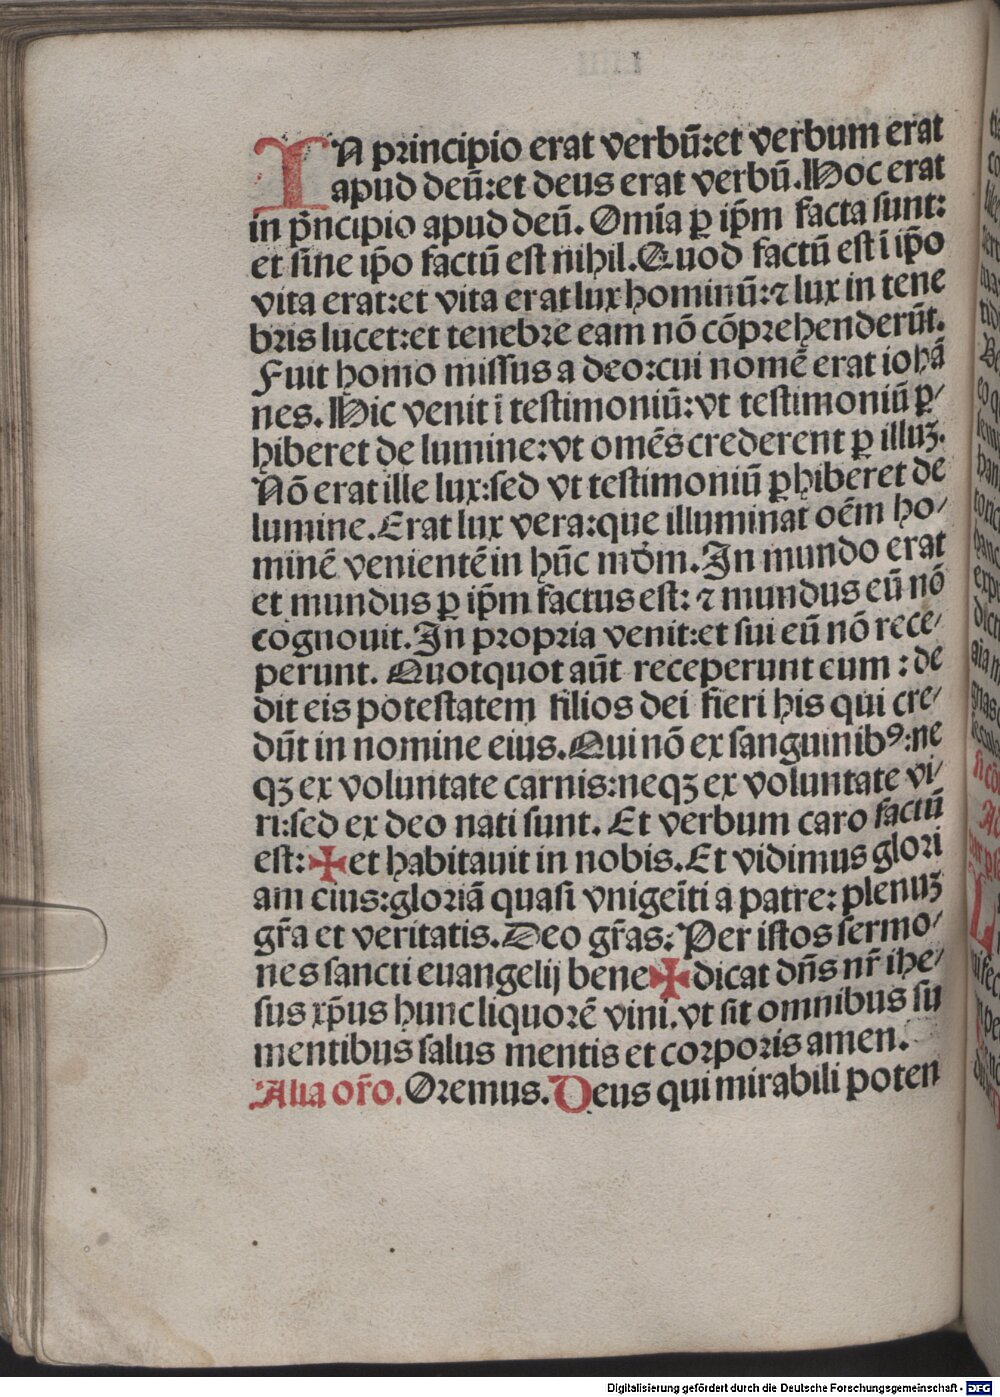 IN principio erat verbū:et verbum erat
apud deū:et deus erat verbū.Hoc erat
in pͥncipio apud deū. Omīa ꝑ ip̄m facta sunt:
et sine ip̄o factū est nihil.Quod factū est ī ip̄o
vita erat:et vita erat lux hominū:⁊ lux in tene
bris lucet:et tenebre eam nō cōprehenderūt.
Fuit homo missus a deo:cui nomē erat iohā
nes. Hic venit ī testimoniū:vt testimoniū ꝑ/
hiberet de lumine:vt omēs crederent ꝑ illuꝫ.
Nō erat ille lux:sed vt testimoniū ꝑhiberet de
lumine.Erat lux vera:que illuminat oēm ho/
minē venientē in hūc mōm.In mundo erat
et mundus ꝑ ip̄m factus est: ⁊ mundus eū nō
cognouit.In propria venit:et sui eū nō rece/
perunt. Quotquot aūt receperunt eum : de
dit eis potestatem filios dei fieri his qui cre/
dūt in nomine eius.Qui nō ex sanguinibꝰ:ne
qꝫ ex voluntate carnis:neqꝫ ex voluntate vi/
ri:sed ex deo nati sunt. Et verbum caro factū
est: ✠ et habitauit in nobis.Et vidimus glori
am eius:gloriā quasi vnigeīti a patre: plenuꝫ
gr̄a et veritatis.Deo gr̄as: Per istos sermo/
nes sancti euangelij bene ✠ dicat dn̄s nr̄ ihe/
sus xp̄us hunc liquorē vini.vt sit omnibus su
mentibus salus mentis et corporis amen.
Alia or̄o. Oremus. Deus qui mirabili poten
Digitalisierung gefördert durch die Deutsche Forschungsgemeinschaft - DFG